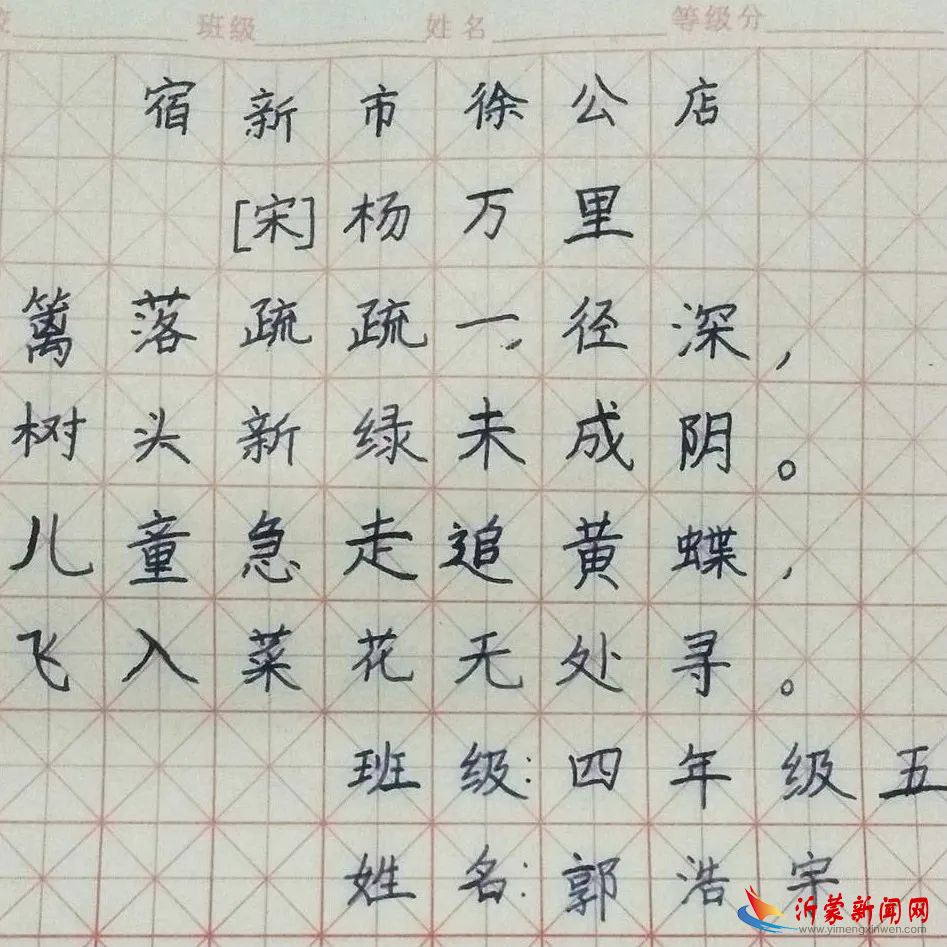 班级 姓名 等级分
宿新市徐公店
[宋]杨万里
篱落疏疏一径深,
树头新绿未成阴。
儿童急走追黄蝶,
飞入菜花无处寻。
班级:四年级五
姓名:郭浩宇
沂蒙新闻网
www.yimengxinwen.com